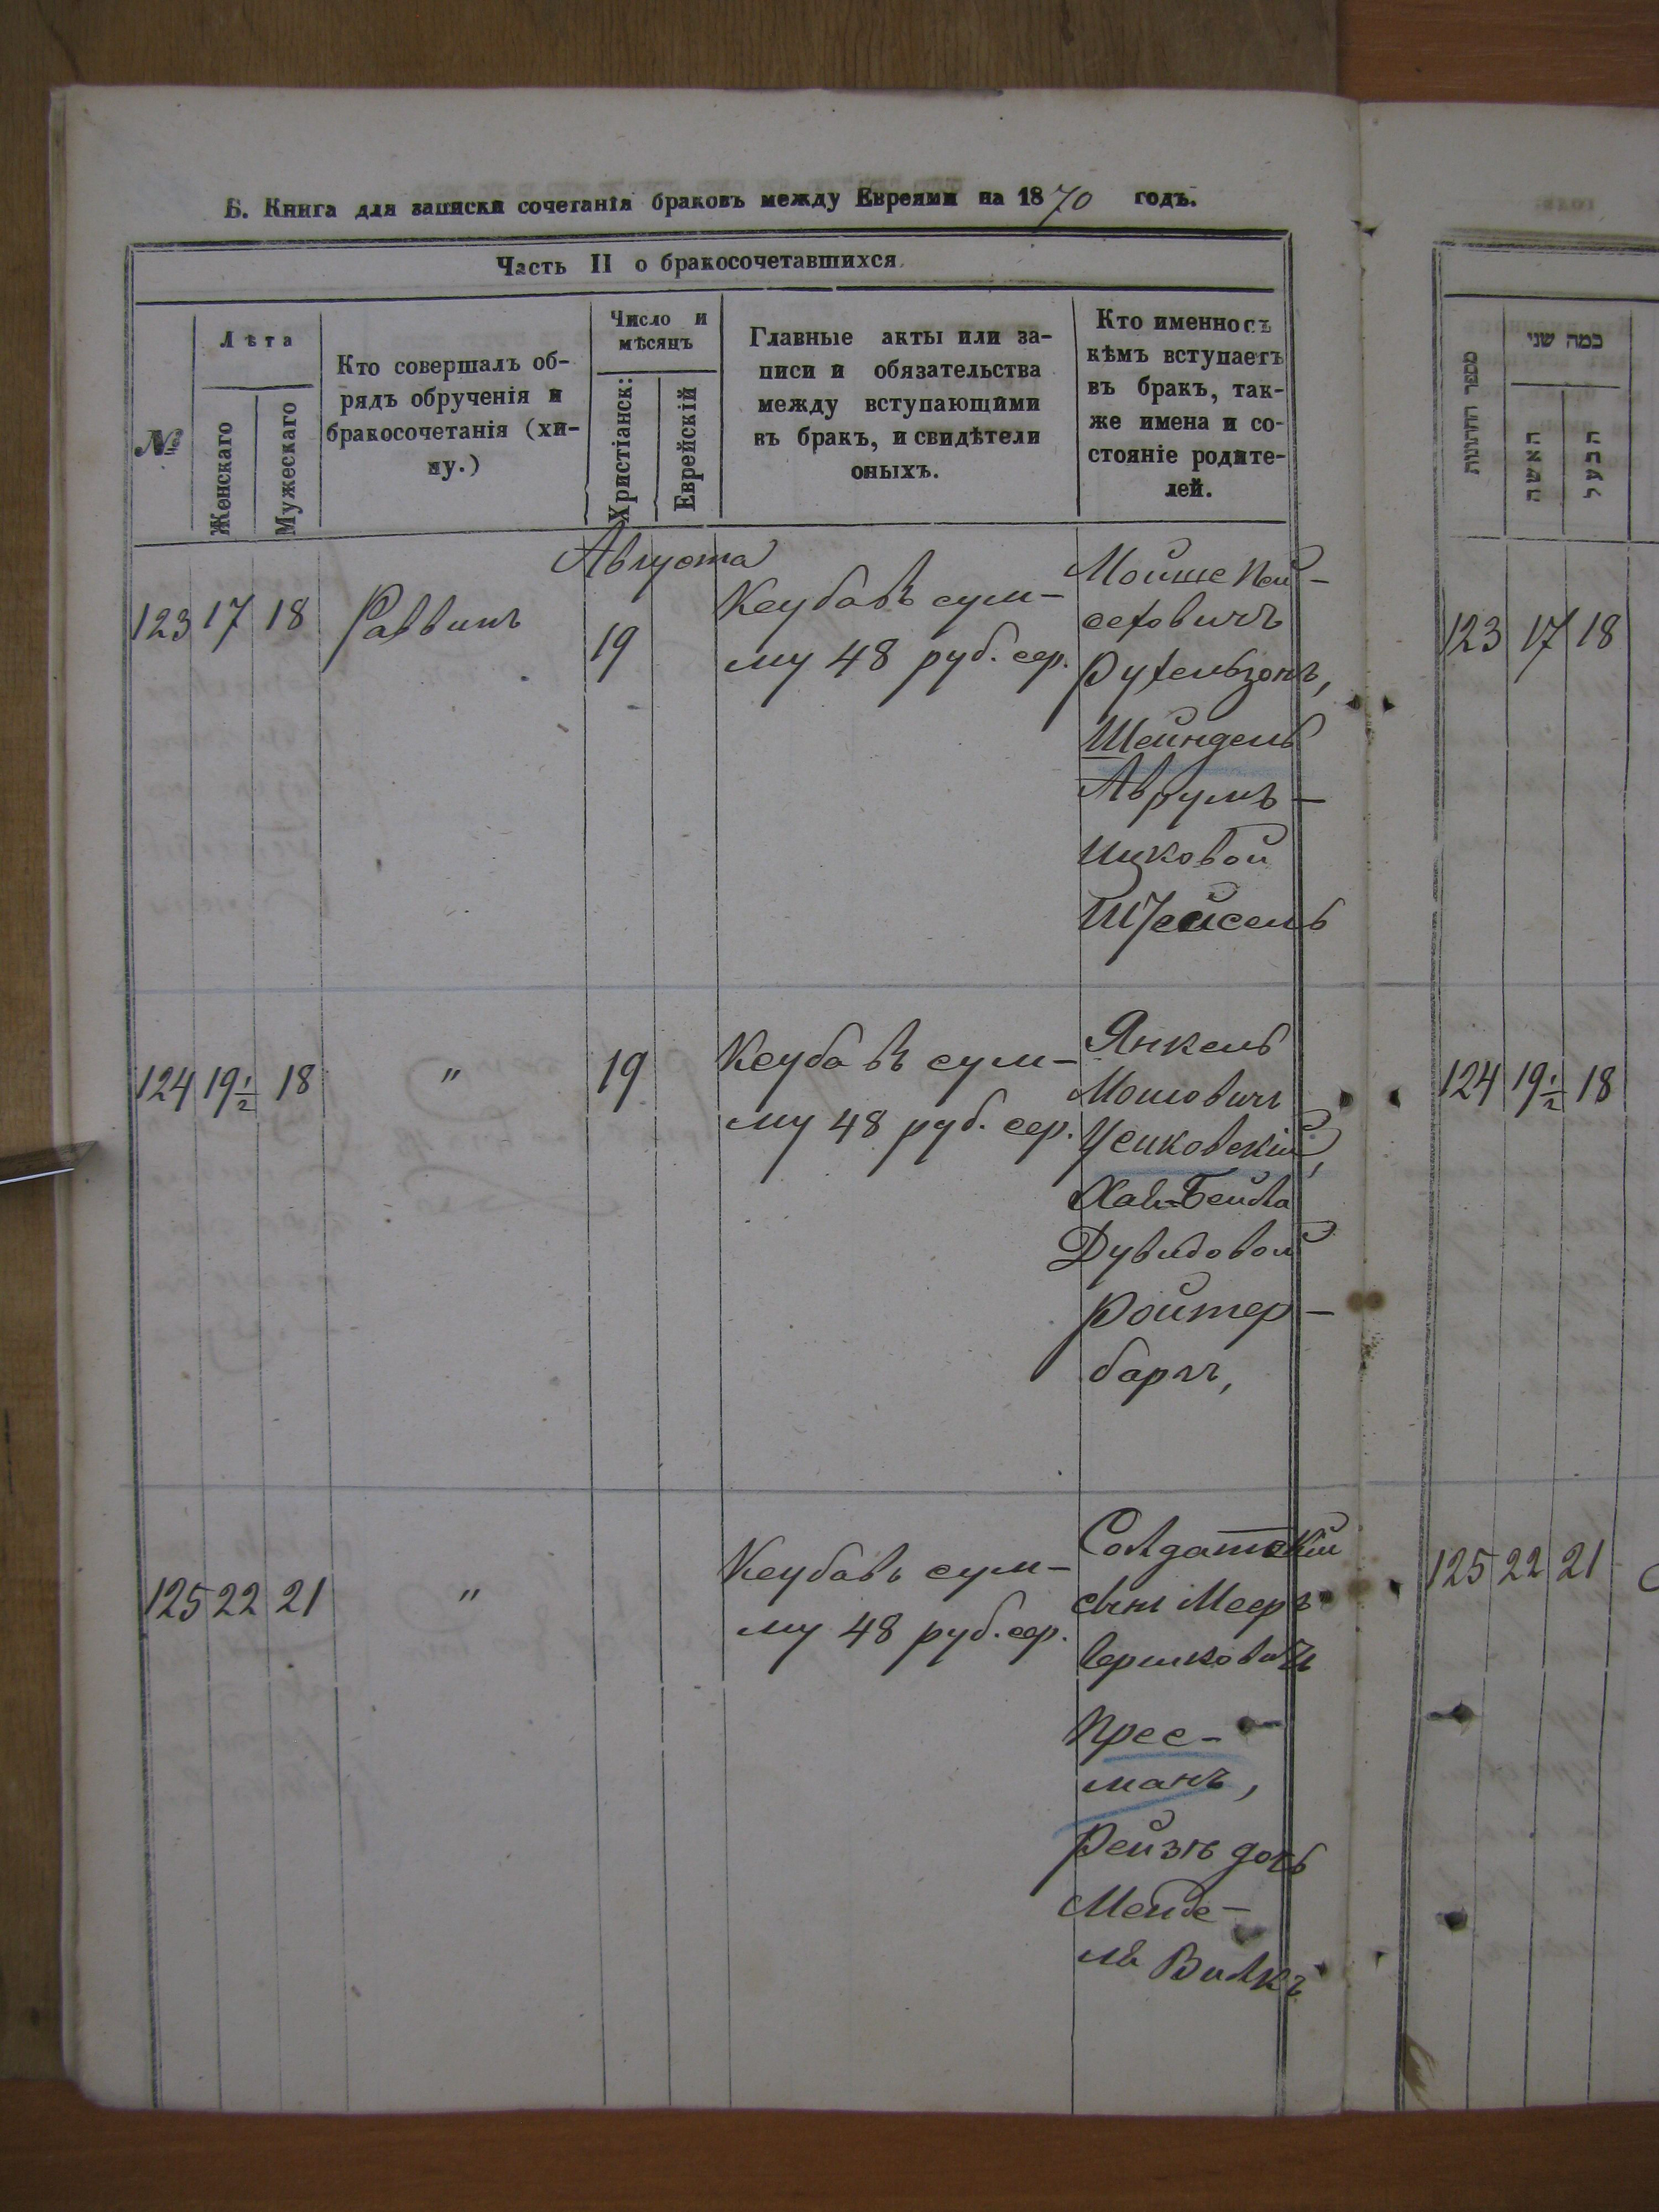 Б. Книга для записки сочетанія браковъ между Евреями на 1870 годъ.
Часть II о бракосочетавшихся.
№
Лѣта
Женскаго
Мужескаго
Кто совершалъ об-
рядъ обрученія и
бракосочетанія (хи-
пу.)
Число и
мѣсяцъ
Христіанск:
Еврейскій
Главные акты или за-
писи и обязательства
между вступающими
въ бракъ, и свидѣтели
оныхъ.
Кто именно съ
кѣмъ вступаетъ
въ бракъ, так-
же имена и со-
стояніе родите-
лей.
Августа
123 17 18 Раввинъ 19
Ксуба въ сум-
му 48 руб. сер.
Мойше Пей-
сеховичъ
Рухельзонъ,
Шейндель
Аврумъ-
Ицковой
Штейсель
124 19 1/2 18 " 19
Ксуба въ сум-
му 48 руб. сер.
Янкель
Мошовичъ
Усиковскій,
Хая-Бейла
Дувидовой
Ройтер-
баргъ,
125 22 21 "
Ксуба въ сум-
му 48 руб. сер.
Солдатскій
сынъ Мееръ
Берковичъ
Прес-
манъ,
Рейзя дочь
Менде-
ля Вилкъ
מספר החתונות
כמה שני
האשה
הבעל
123 17 18
124 19 1/2 18
125 22 21